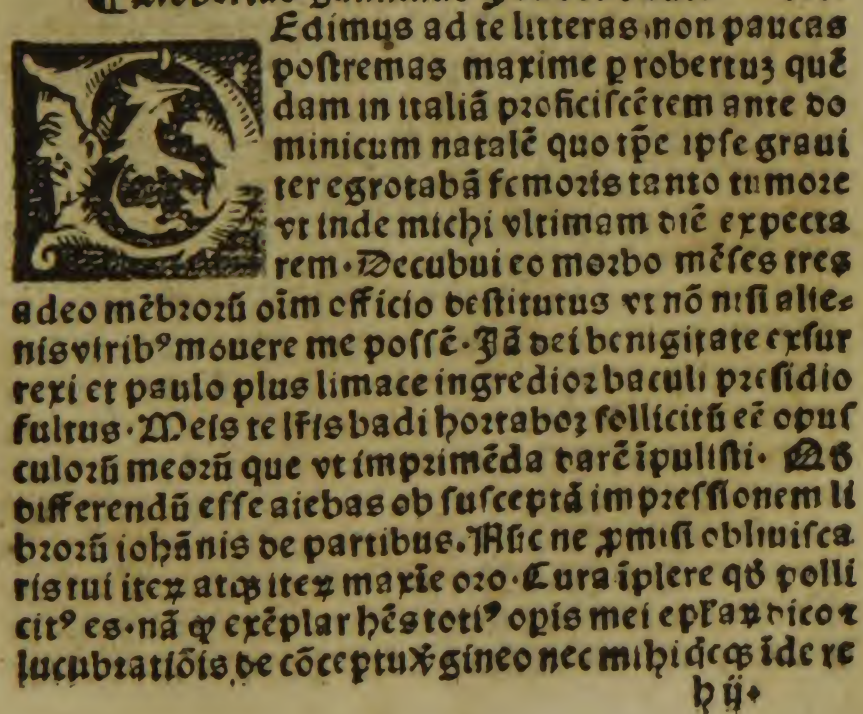 Edimus ad te litteras non paucas
postremas maxime p robertuȝ quē
dam in italiā proficiscētem ante do
minicum natalē quo tp̄e ipse graui
ter egrotabā femoris tanto tumore
vt inde michi vltimam diē expecta
rem. Decubui eo morbo mēses tres
adeo mēbrorū oīm officio destitutus vt nō nisi alie⸗
nis virib⁹ mouere me possē. Jā dei benigitate exsur
rexi et paulo plus limace ingredior baculi presidio
fultus. Meis te lr̄is badi hortabor sollicitū eē opus
culorū meorū que vt imprimēda darē īpulisti. Qđ
differendū esse aiebas ob susceptā impressionem li
brorū iohānis de partibus. Nūc ne ꝓmissi obliuisca
ris tui iteꝝ atqꝫ iteꝝ maxīe oro. Cura īplere qđ polli
cit⁹ es. nā ꝙ exēplar hēs toti⁹ opis mei epl̄aꝝ dico ⁊
lucubratiōis de cōceptu gineo nec mihi īde re
h ij.